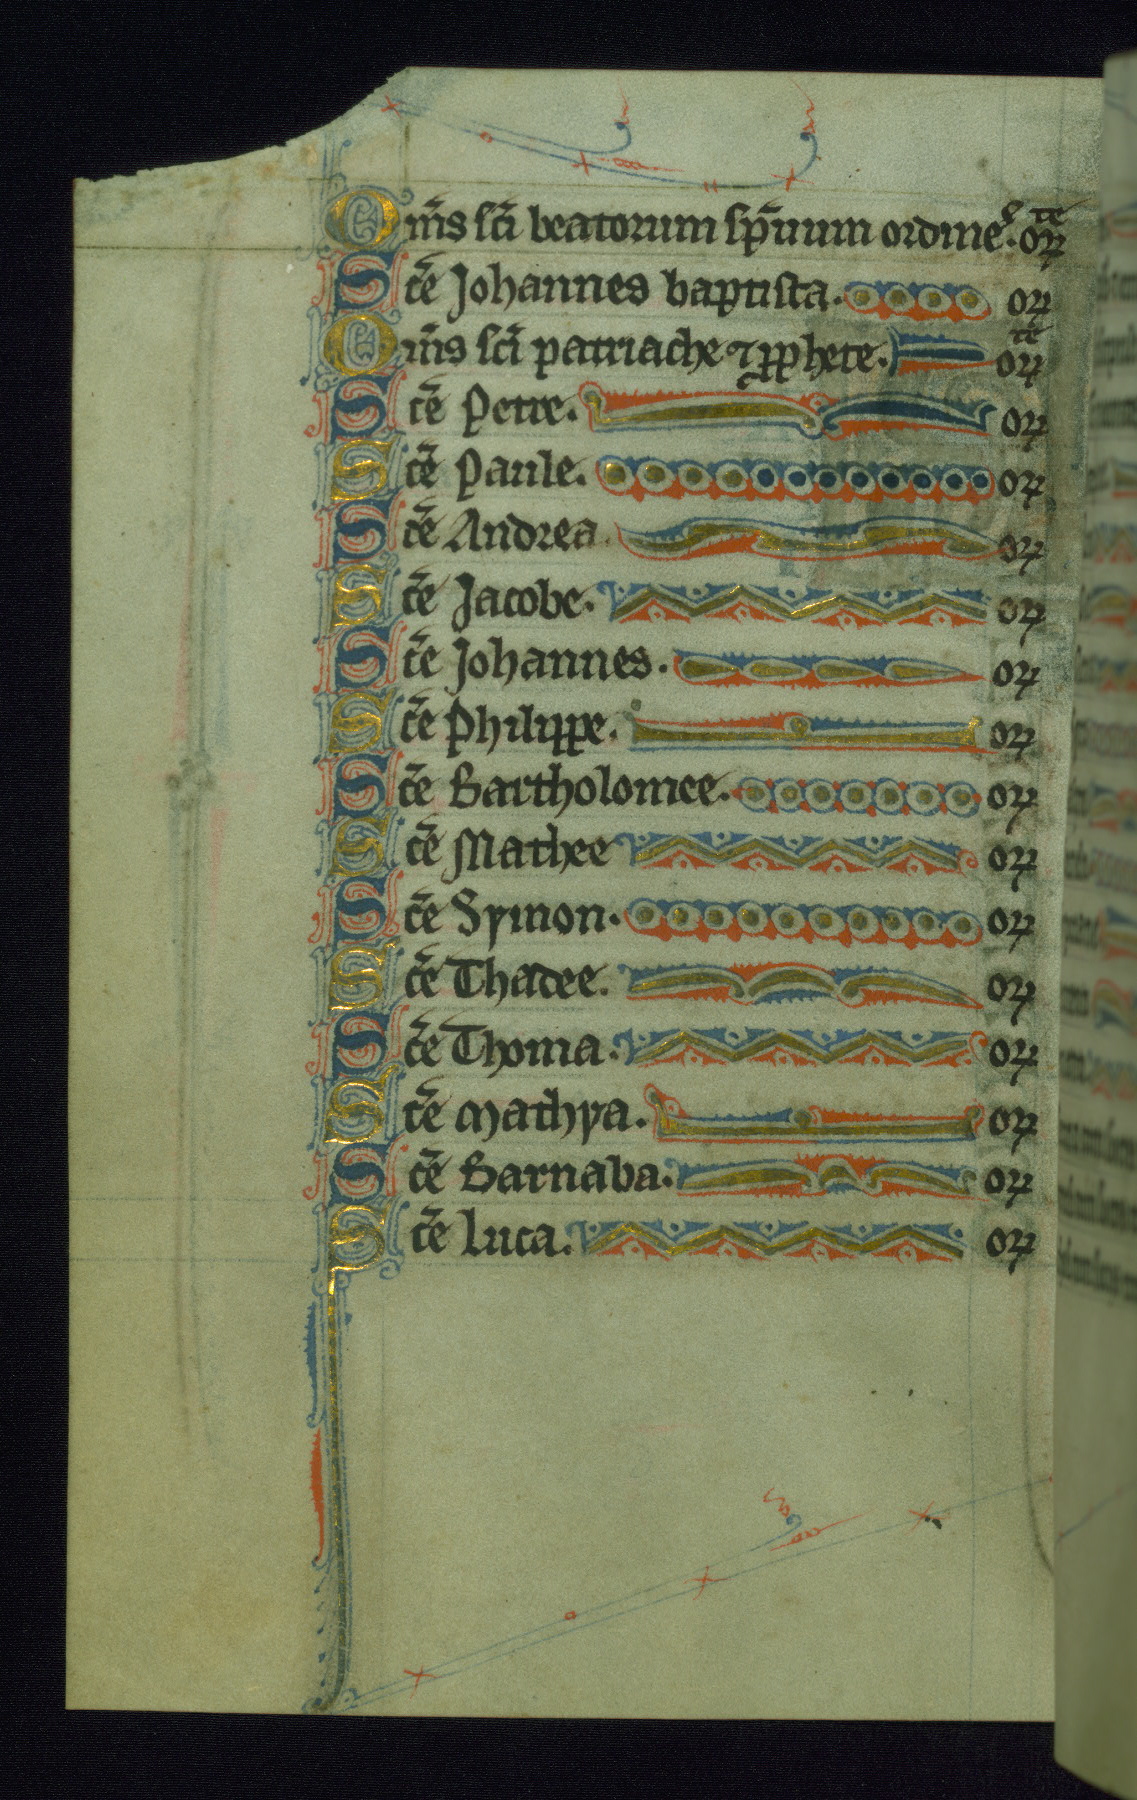 Om̄s sc̄i beatorum sp̄nuum ordines. orate
Sc̄e Johannes baptista. or
Om̄s sc̄i patriache ⁊ pphete. orate
Sc̄e Petre. or
Sc̄e Paule. or
Sc̄e Andrea or
Sc̄e Jacobe. or
Sc̄e Johannes. or
Sc̄e Philippe. or
Sc̄e Bartholomee. or
Sc̄e Mathee or
Sc̄e Symon. or
Sc̄e Thadee. or
Sc̄e Thoma. or
Sc̄e Mathya. or
Sc̄e Barnaba. or
Sc̄e Luca. or